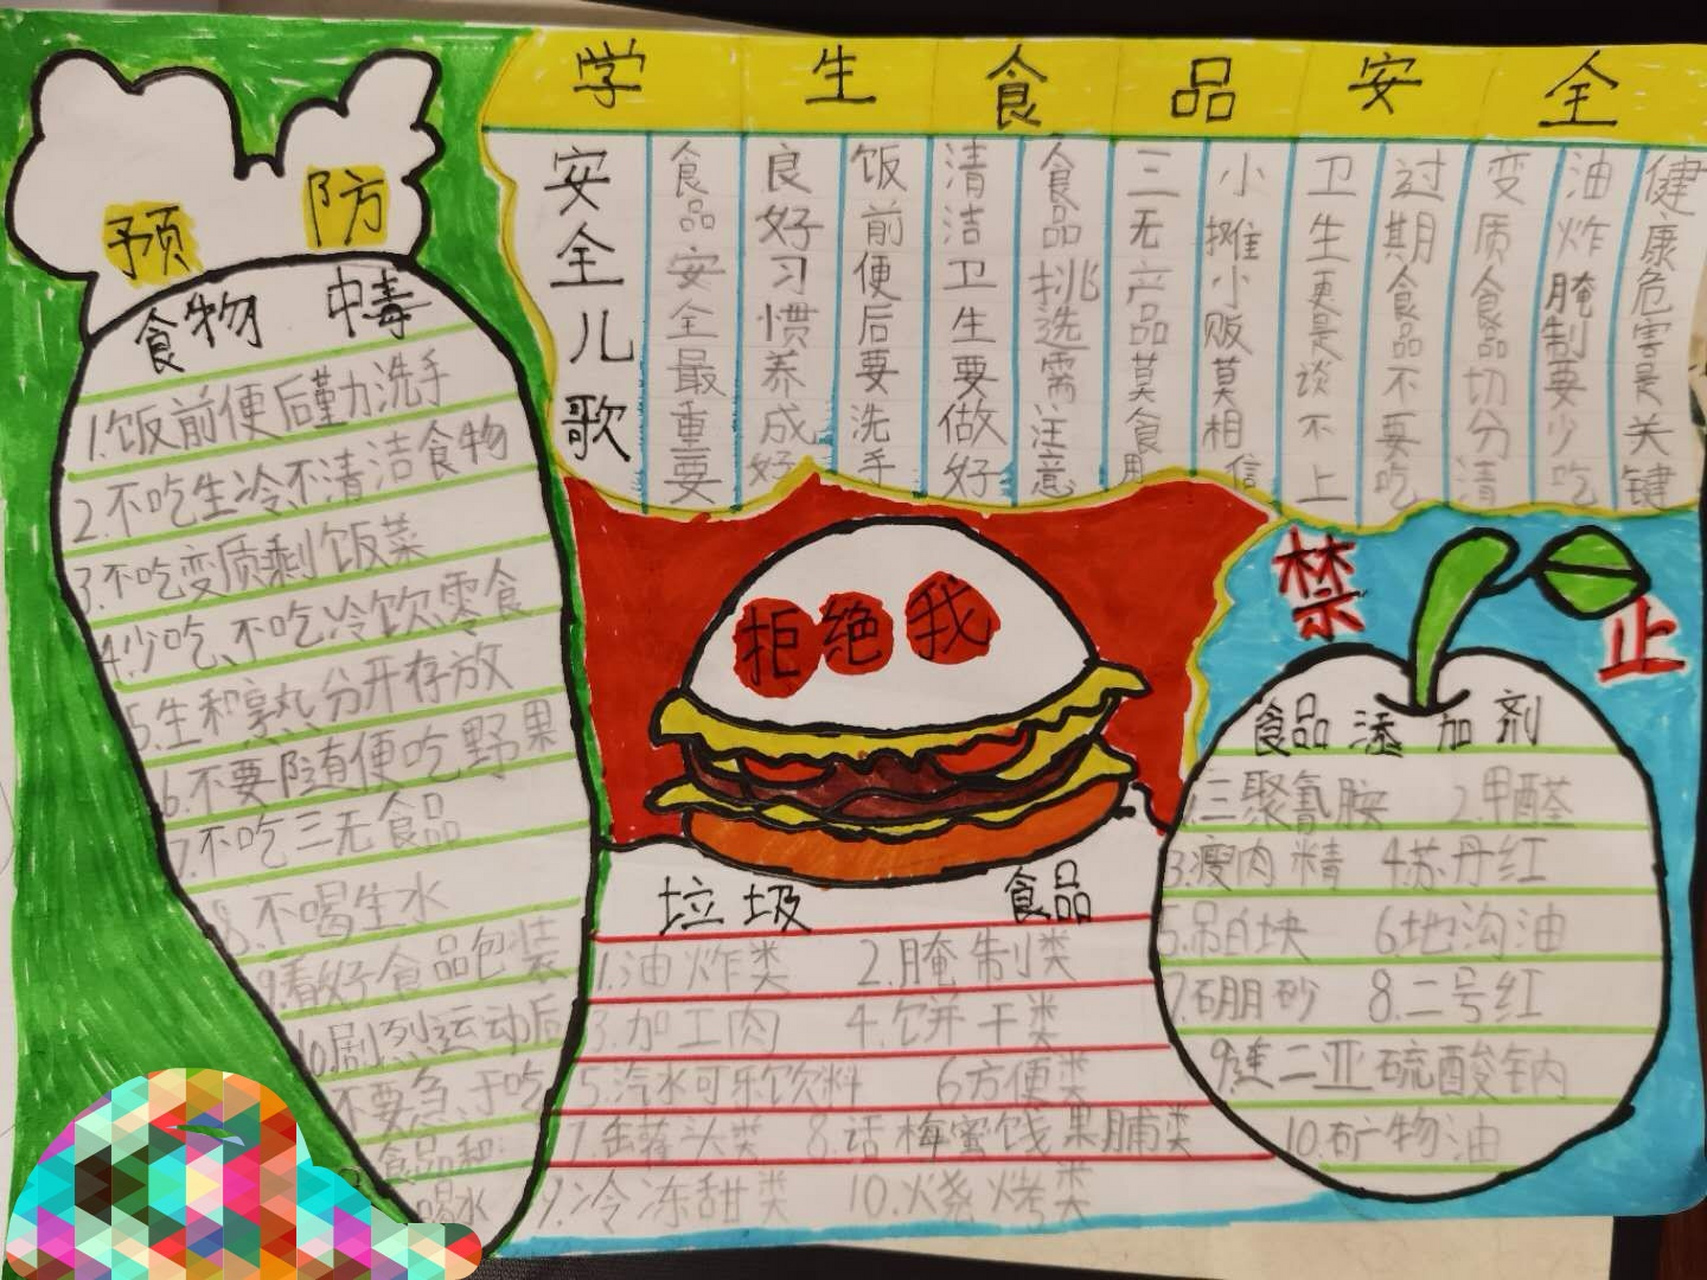 学生食品安全
安全儿歌
食品安全最重要
良好习惯养成好
饭前便后要洗手
清洁卫生要做好
食品挑选需注意
三无产品莫食用
小摊小贩莫相信
卫生更是谈不上
过期食品不要吃
变质食品切分清
油炸腌制要少吃
健康危害是关键
预防
食物中毒
1.饭前便后勤洗手
2.不吃生冷不清洁食物
3.不吃变质剩饭菜
4.少吃、不吃冷饮零食
5.生和熟分开存放
6.不要随便吃野果
7.不吃三无食品
8.不喝生水
9.看好食品包装
10.剧烈运动后
不要急于吃
食品和
喝水
拒绝我
垃圾食品
1.油炸类 2.腌制类
3.加工肉 4.饼干类
5.汽水可乐饮料 6方便类
7.罐头类 8.话梅蜜饯果脯类
9.冷冻甜类 10.烧烤类
禁止
食品添加剂
1.三聚氰胺 2.甲醛
3.瘦肉精 4苏丹红
5.吊白块 6.地沟油
7.硼砂 8.二号红
9.焦二亚硫酸钠
10.矿物油